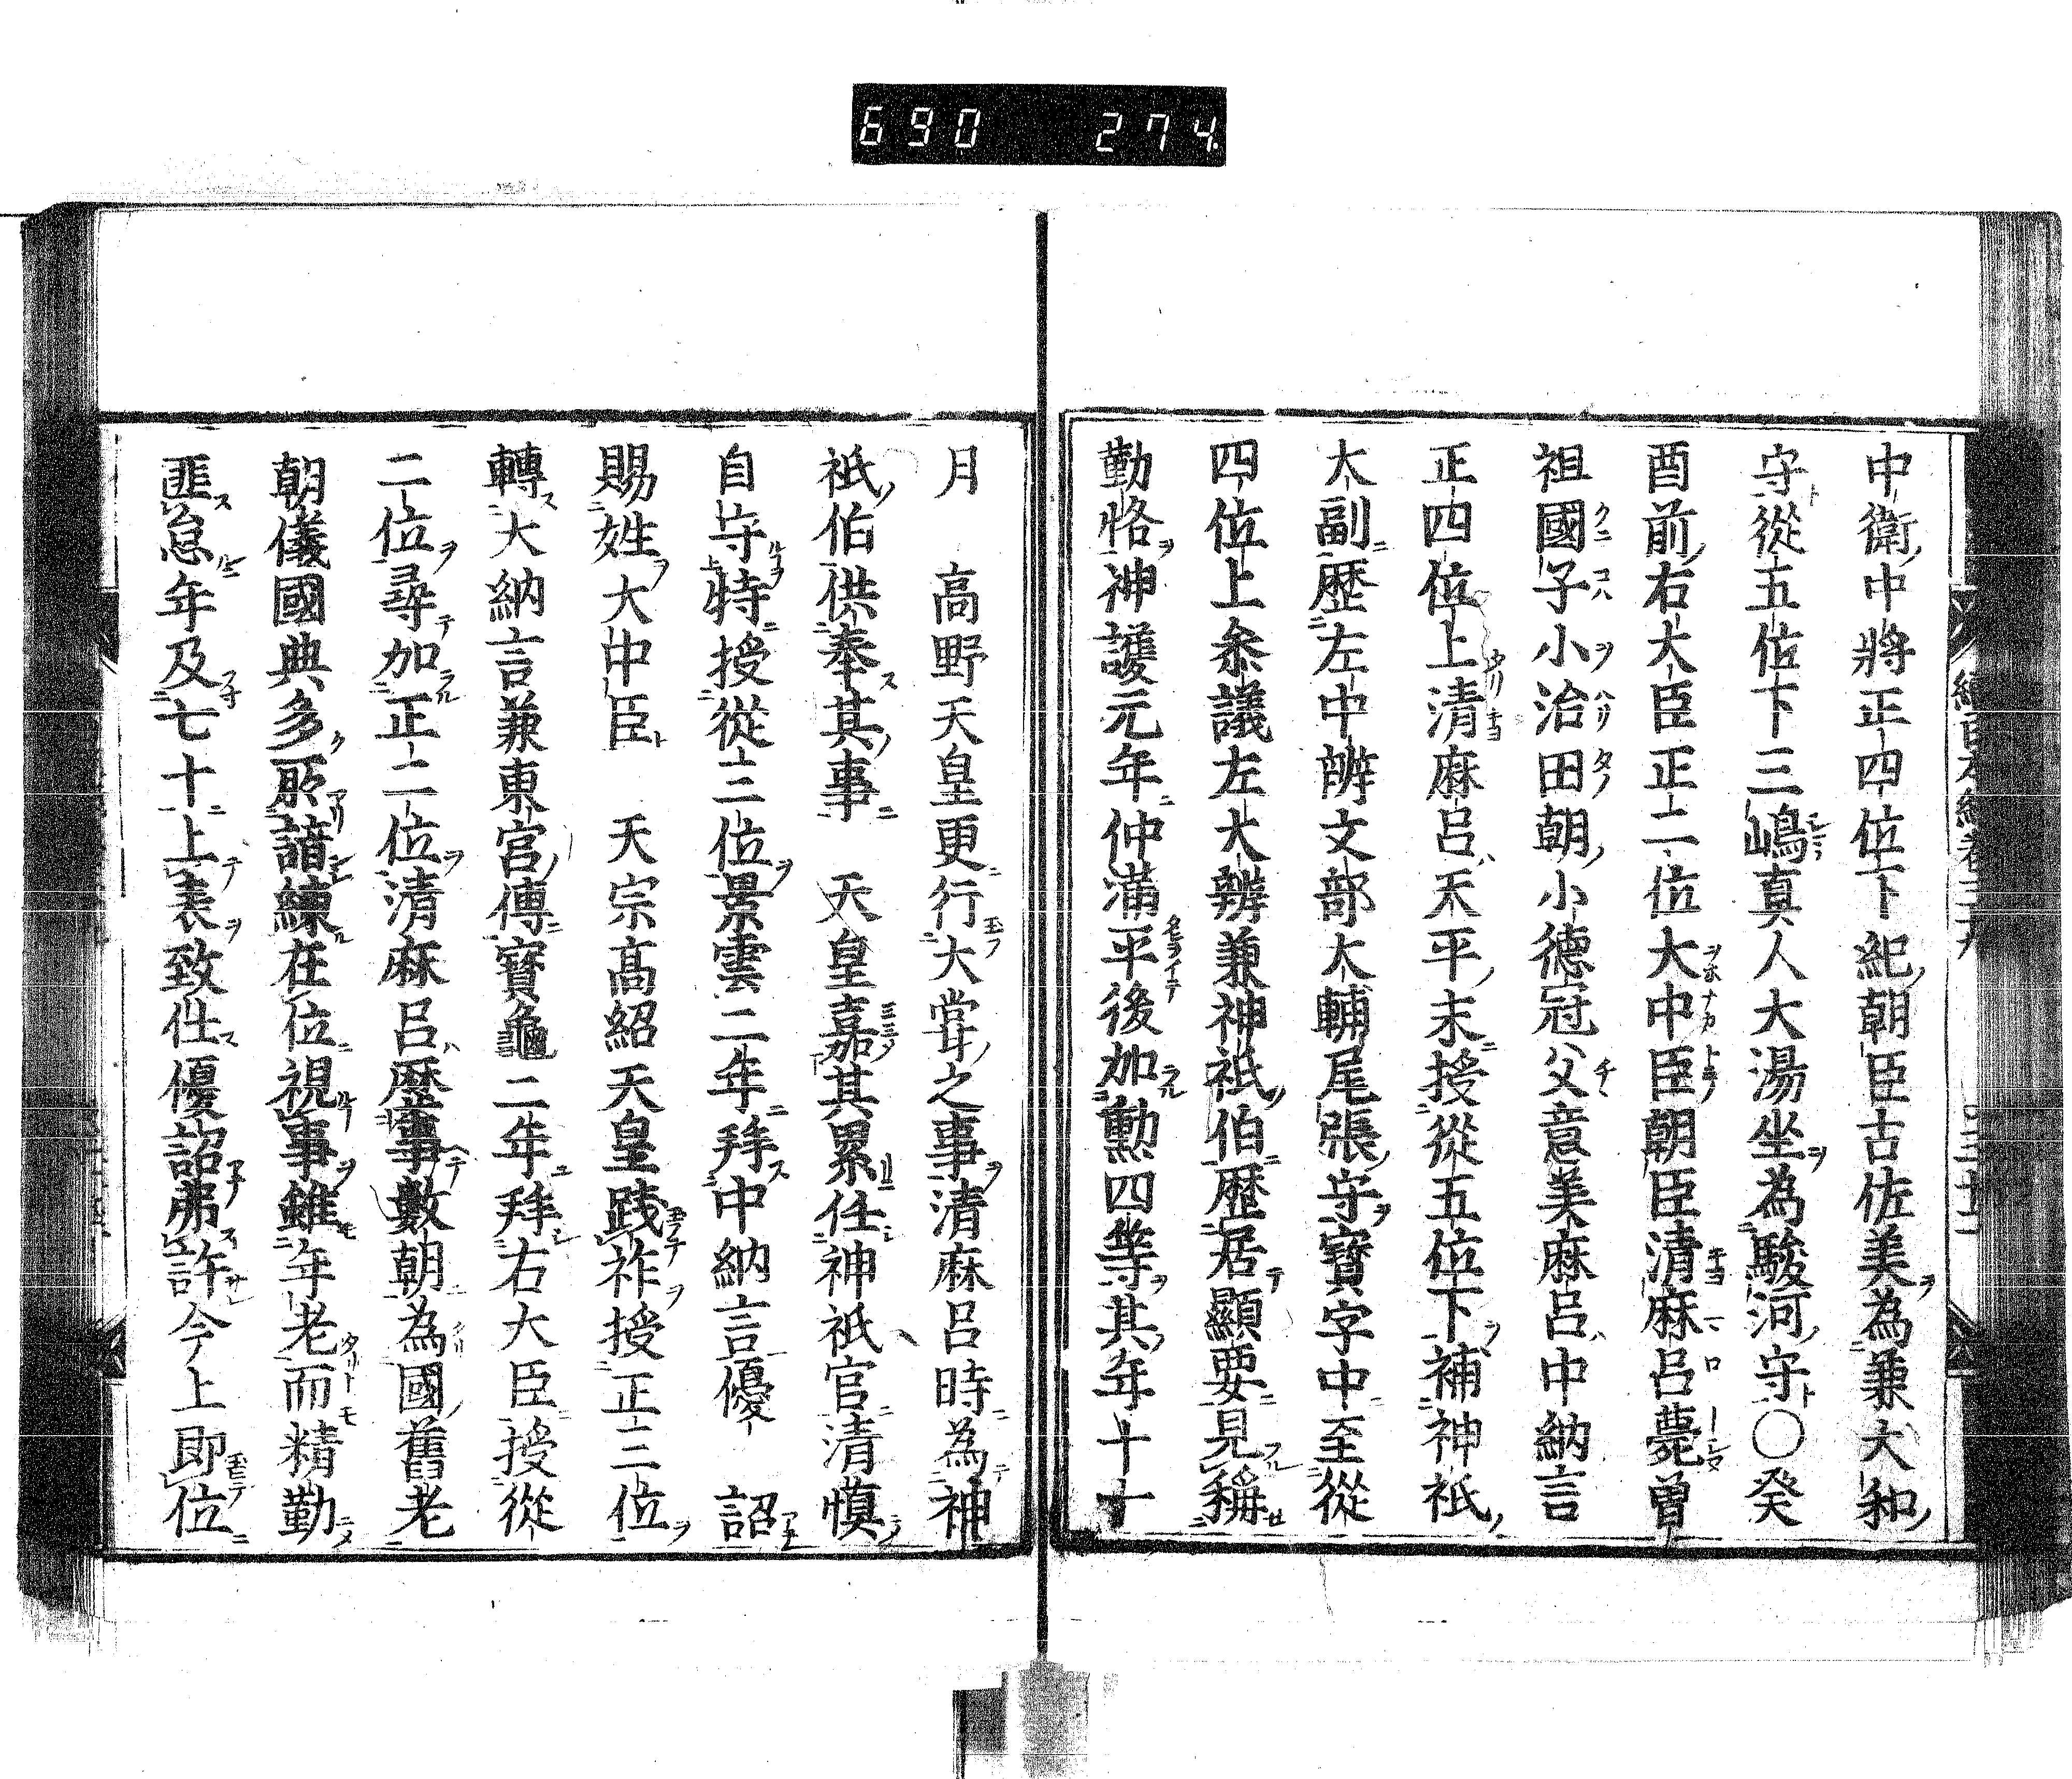 690 274
中衛中將正四位下紀朝臣古佐美為兼大和
守從五位下三嶋真人大湯坐為駿河守〇癸
酉前右大臣正二位大中臣朝臣清麻呂薨曽
祖國子小治田朝小德冠父意美麻呂中納言
正四位上清麻呂天平末授從五位下補神祇
大副歷左中辨文部大輔尾張守寶字中至從
四位上叅議左大辨兼神祇伯歷居顯要見稱
勤恪神護元年仲滿平後加勲四等其年十一
月 高野天皇更行大甞之事清麻呂時為神
祇伯供奉其事 天皇嘉其累任神祇官清慎
自守特授從三位景雲二年拜中納言優 詔
賜姓大中臣 天宗高紹天皇践祚授正三位
轉大納言兼東宮傅寶龜二年拜右大臣授從
二位尋加正二位清麻呂歷事數朝為國舊老
朝儀國典多所諳練在位視事雖年老而精勤
匪怠年及七十上表致仕優詔弗許今上即位